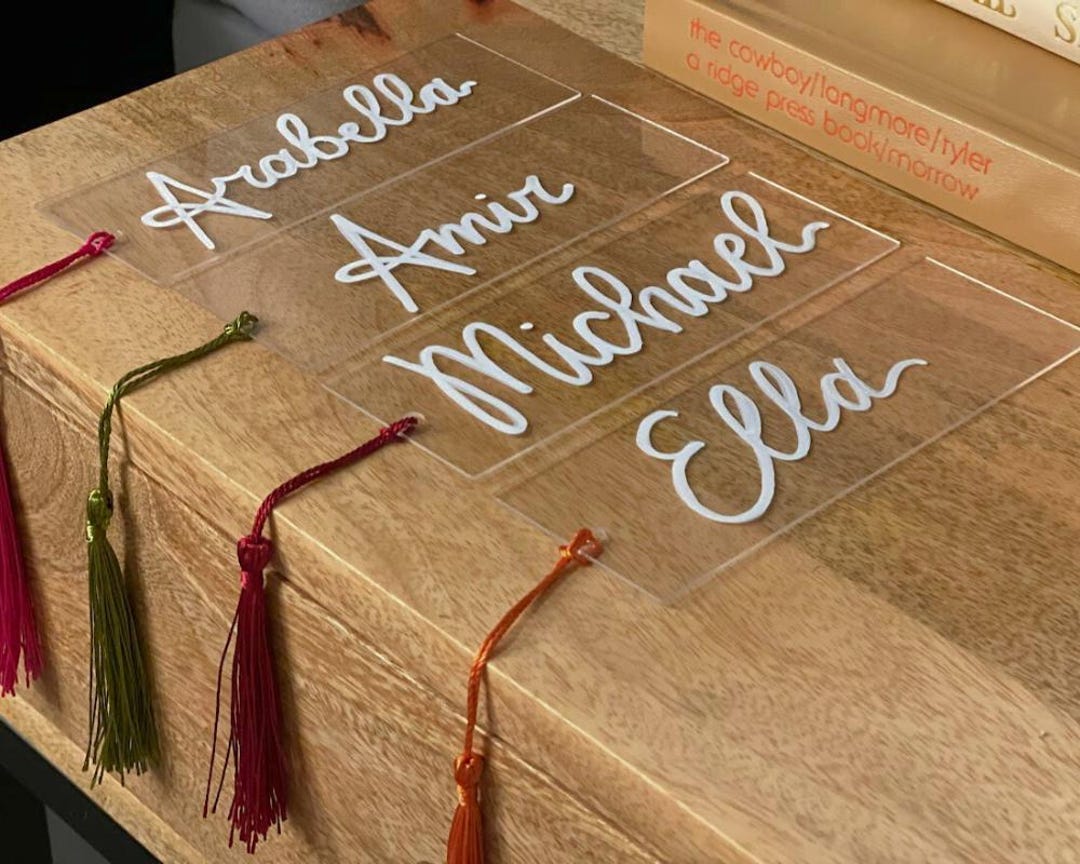 Arabella
Amir
Michael
Ella
the cowboy/langmore/tyler
a ridge press book/morrow